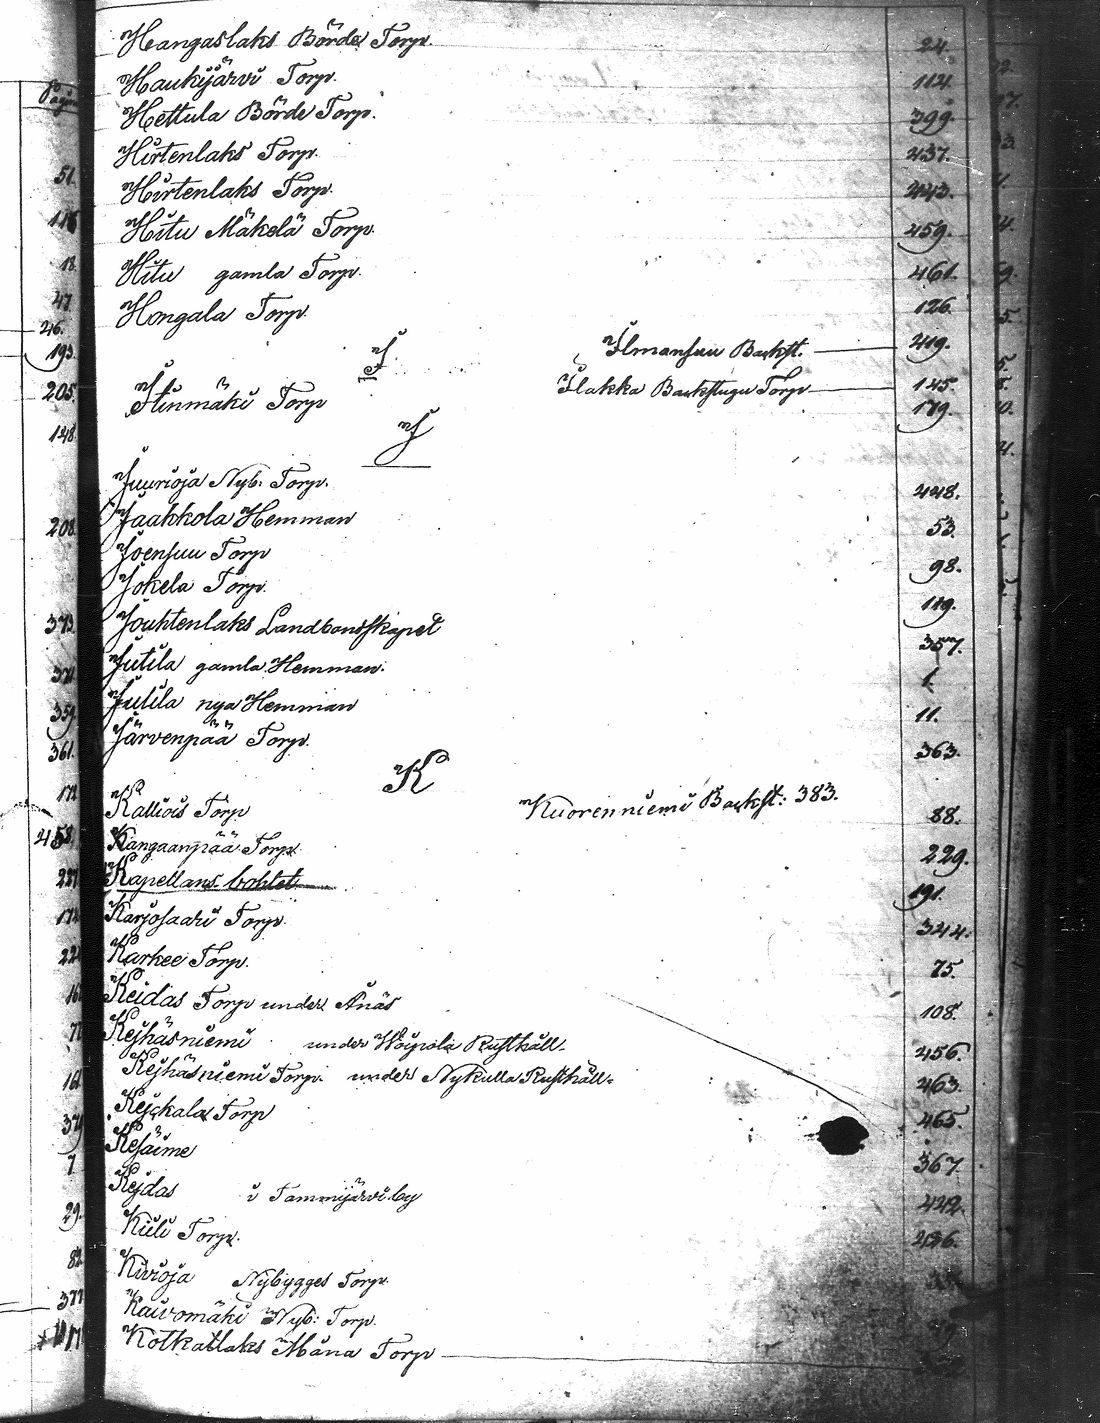 Hangaslaks Börde Torp. 24.
Haukijärvi Torp. 114.
Hettula Börde Torp. 399.
Hirtenlaks Torp. 437.
Hirtenlaks Torp. 443.
Hitu Mäkelä Torp. 459.
Hitu gamla Torp. 461.
Hongala Torp. 126.
I.
Ilmansuu Backst. 419.
Ilakka Backstugu Torp 145.
Iinmäki Torp 179.
J
Juurioja Nyb: Torp. 448.
Jaakkola Hemman 53.
Joensuu Torp 98.
Jokela Torp. 119.
Jouhtenlaks Landbondskapet 357.
Jutila gamla Hemman. 1.
Jutila nya Hemman 11.
Järvenpää Torp. 363.
K
Kuorenniemi Backst: 383.
Kalliois Torp 88.
Kangaanpää Torp. 229.
Kapellans bohlet 191.
Karjosaari Torp. 344.
Karkee Torp. 75.
Keidas Torp under Ånäs 108.
Kejhäsniemi under Hoipola Rusthåll. 456.
Kejhäsniemi Torp. under Nykulla Rusthåll. 463.
Kejckala Torp 465.
Kesäime 367.
Kejdas i Tammijärvi by 422.
Kiili Torp. 436.
Kivioja Nybygges Torp.
Kaivomäki Nyb: Torp.
Kotkatlaks Måna Torp
Pagina
51.
116
18.
47
26.
193.
205.
148.
208.
373.
371.
359
361.
458.
7
29.
82
377